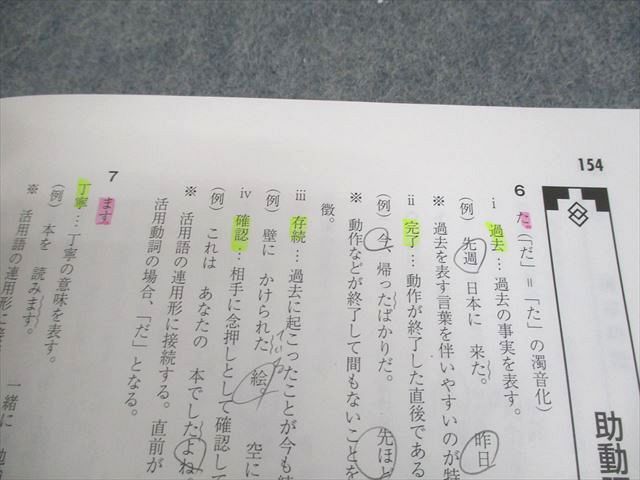 154
助動
6 た（「だ」＝「た」の濁音化）
ⅰ 過去…過去の事実を表す。
（例） 先週 日本に 来た。 昨日
※ 過去を表す言葉を伴いやすいのが特
徴。
ⅱ 完了…動作が終了した直後である
（例） 今、帰ったばかりだ。 先ほど
※ 動作などが終了して間もないことを
ⅲ 存続…過去に起こったことが今も
（例） 壁に かけられた 絵。 空に
ている
ⅳ 確認…相手に念押しとして確認して
（例） これは あなたの 本でしたよね
※ 活用語の連用形に接続する。直前が
活用動詞の場合、「だ」となる。
7 ます
丁寧…丁寧の意味を表す。
（例） 本を 読みます。 一緒に
※ 活用語の連用形に